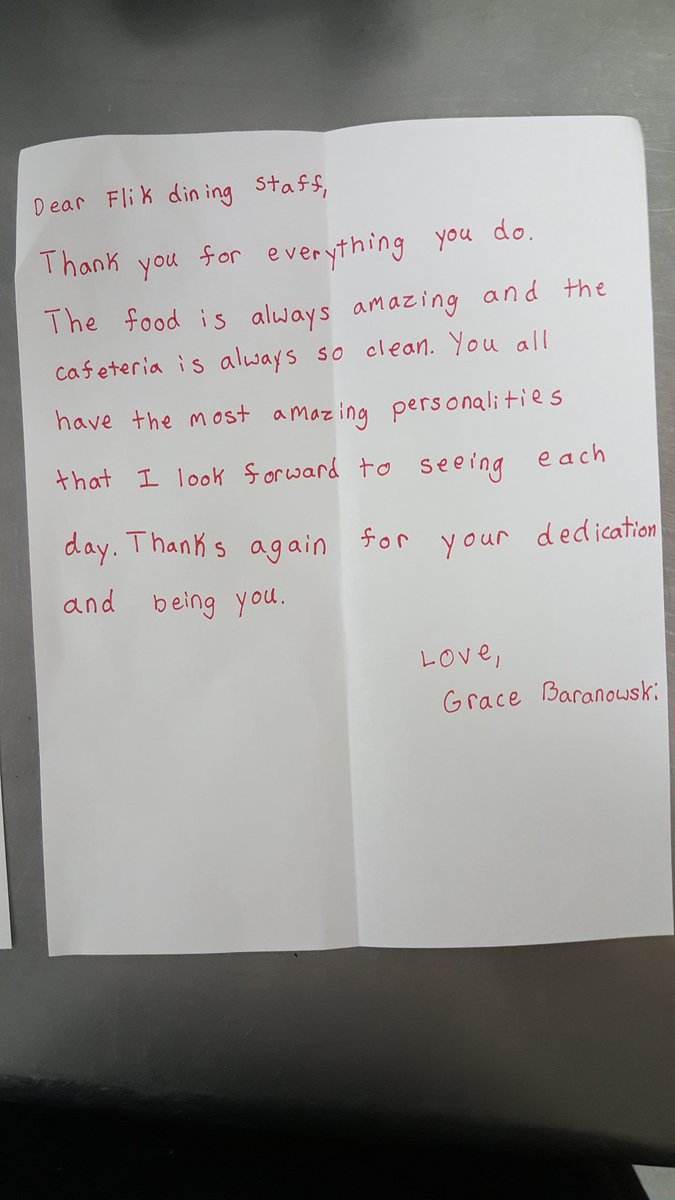 Dear Flik dining staff,
Thank you for everything you do.
The food is always amazing and the
cafeteria is always so clean. You all
have the most amazing personalities
that I look forward to seeing each
day. Thanks again for your dedication
and being you.
Love,
Grace Baranowski